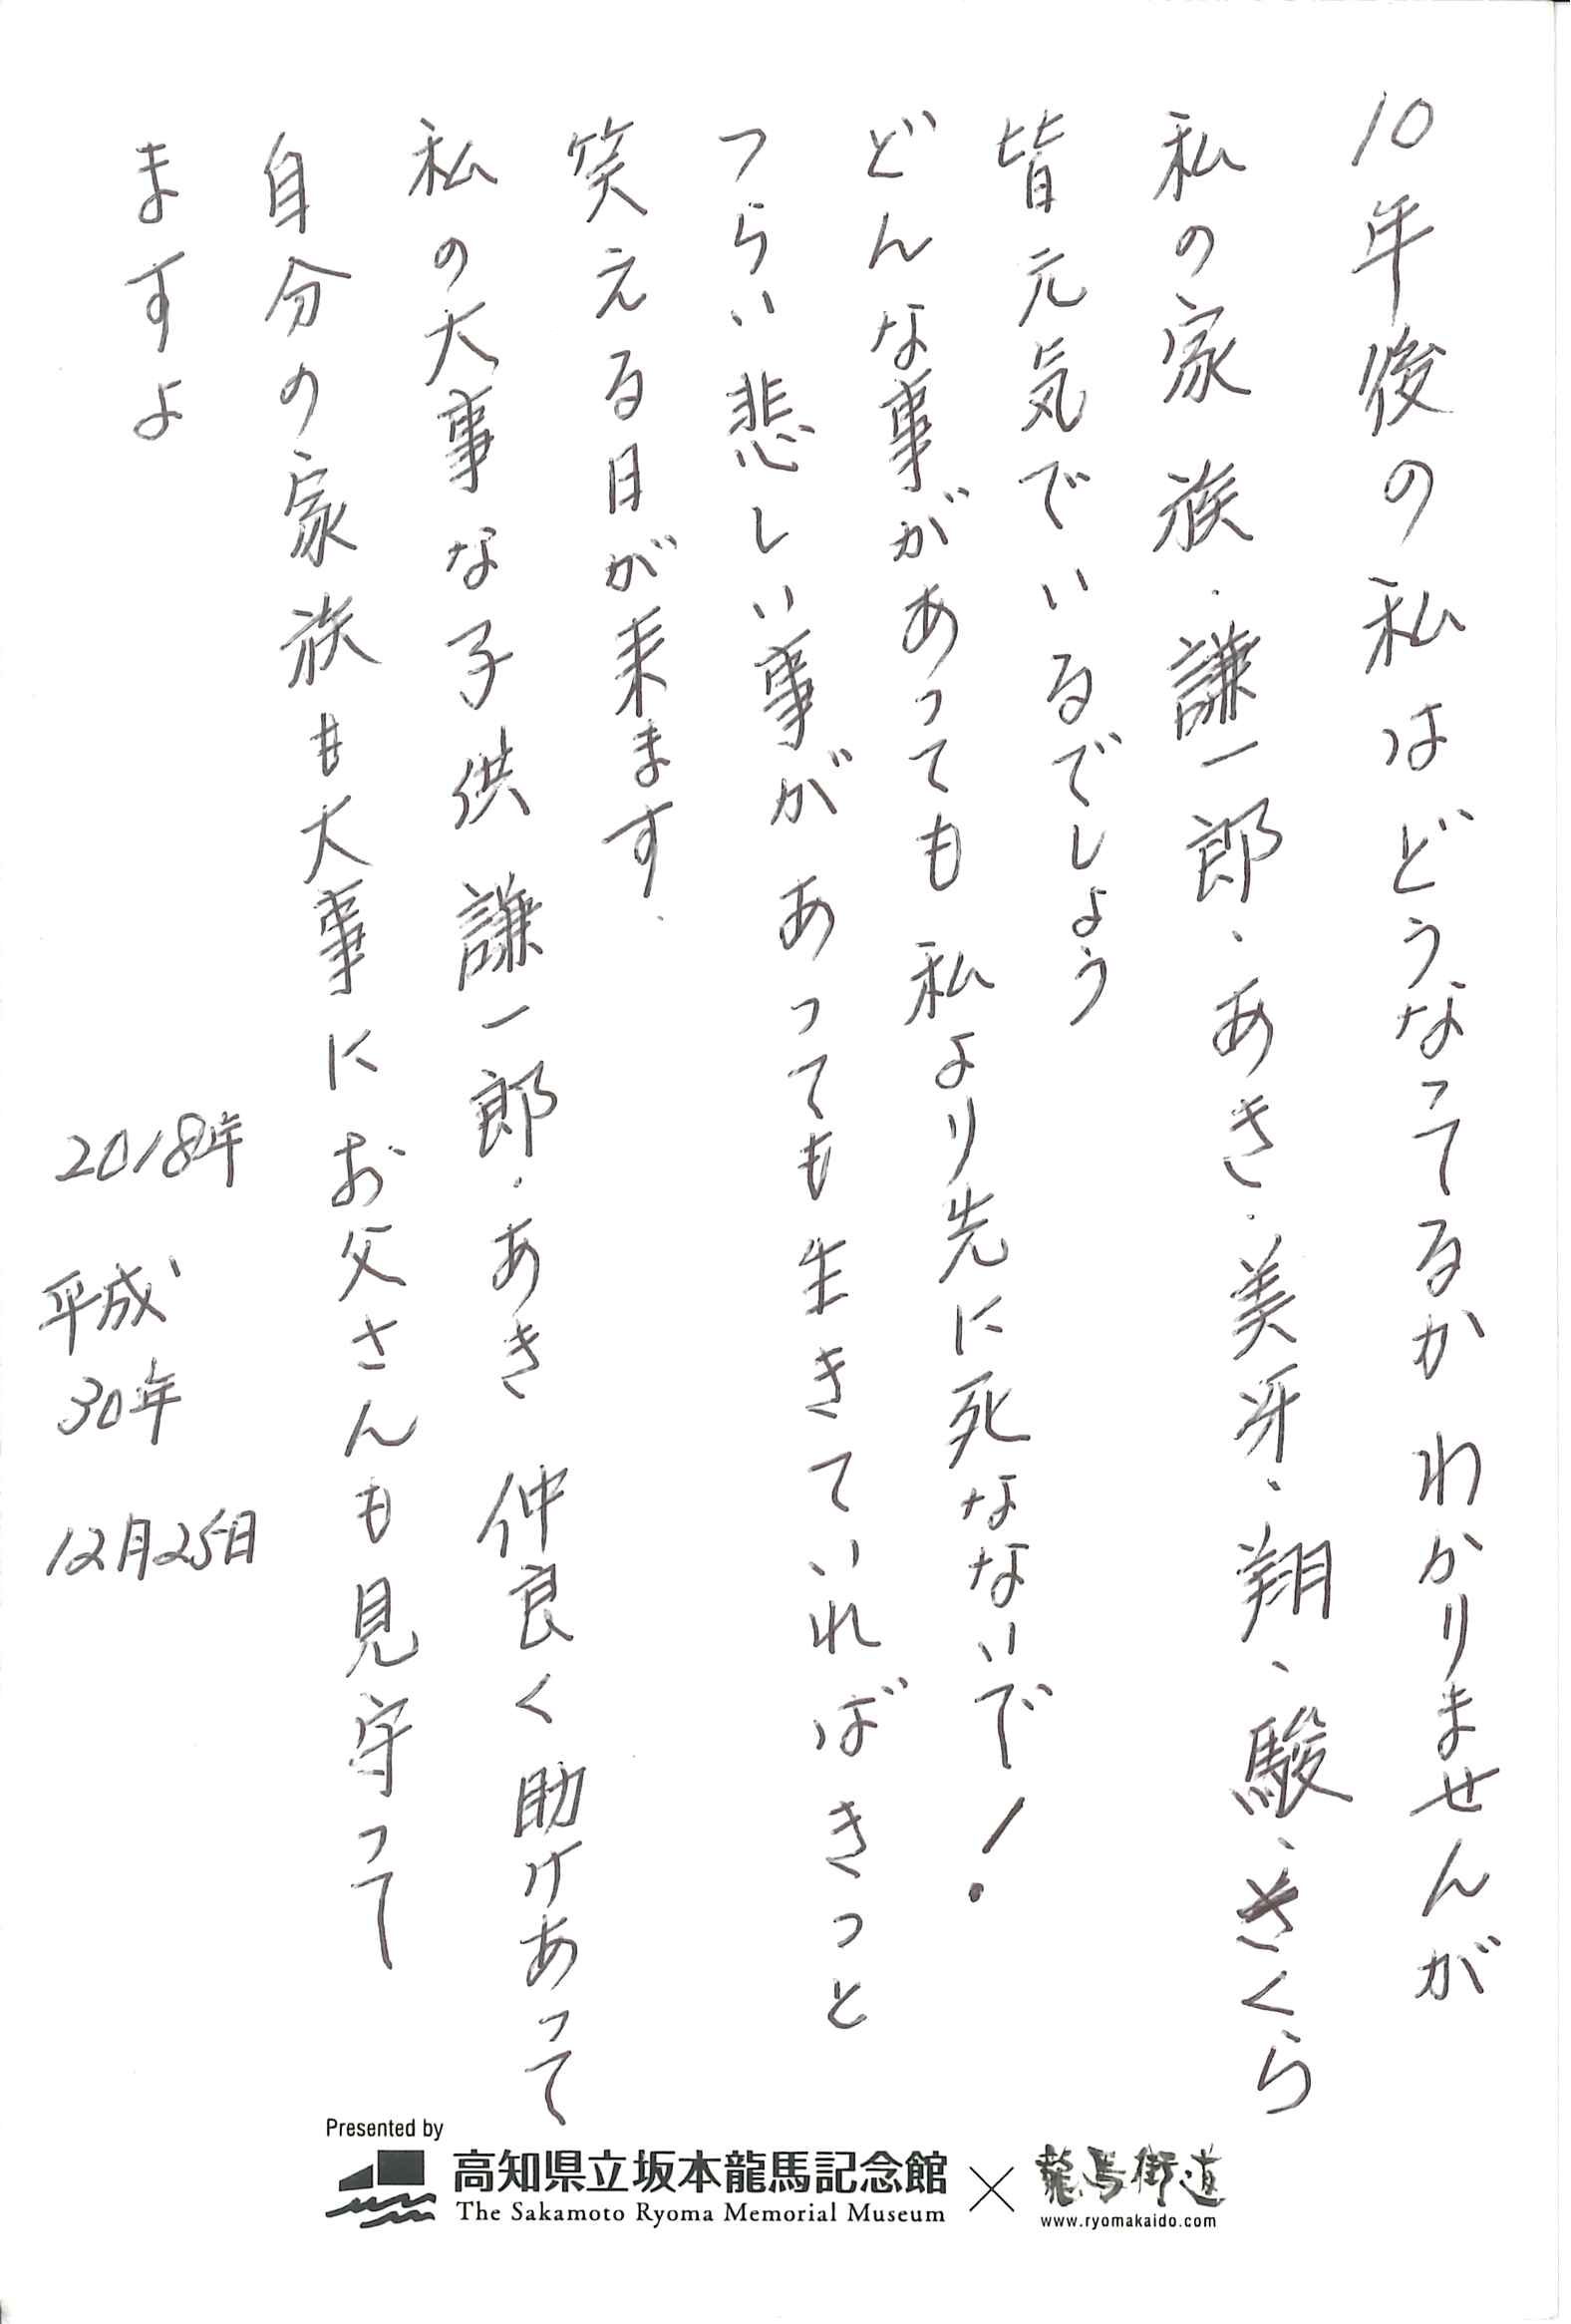 10年後の私はどうなってるか わかりませんが
私の家族・謙一郎・あき・美冴・翔・駿・さくら
皆元気でいるでしょう
どんな事があっても 私より先に死なないで!
つらい悲しい事が あっても生きていればきっと
笑える日が来ます.
私の大事な子供 謙一郎・あき 仲良く助けあって
自分の家族も大事に お父さんも見守って
ますよ
2018年
平成
30年
12月25日
Presented by
高知県立坂本龍馬記念館
The Sakamoto Ryoma Memorial Museum
×
龍馬街道
www.ryomakaido.com